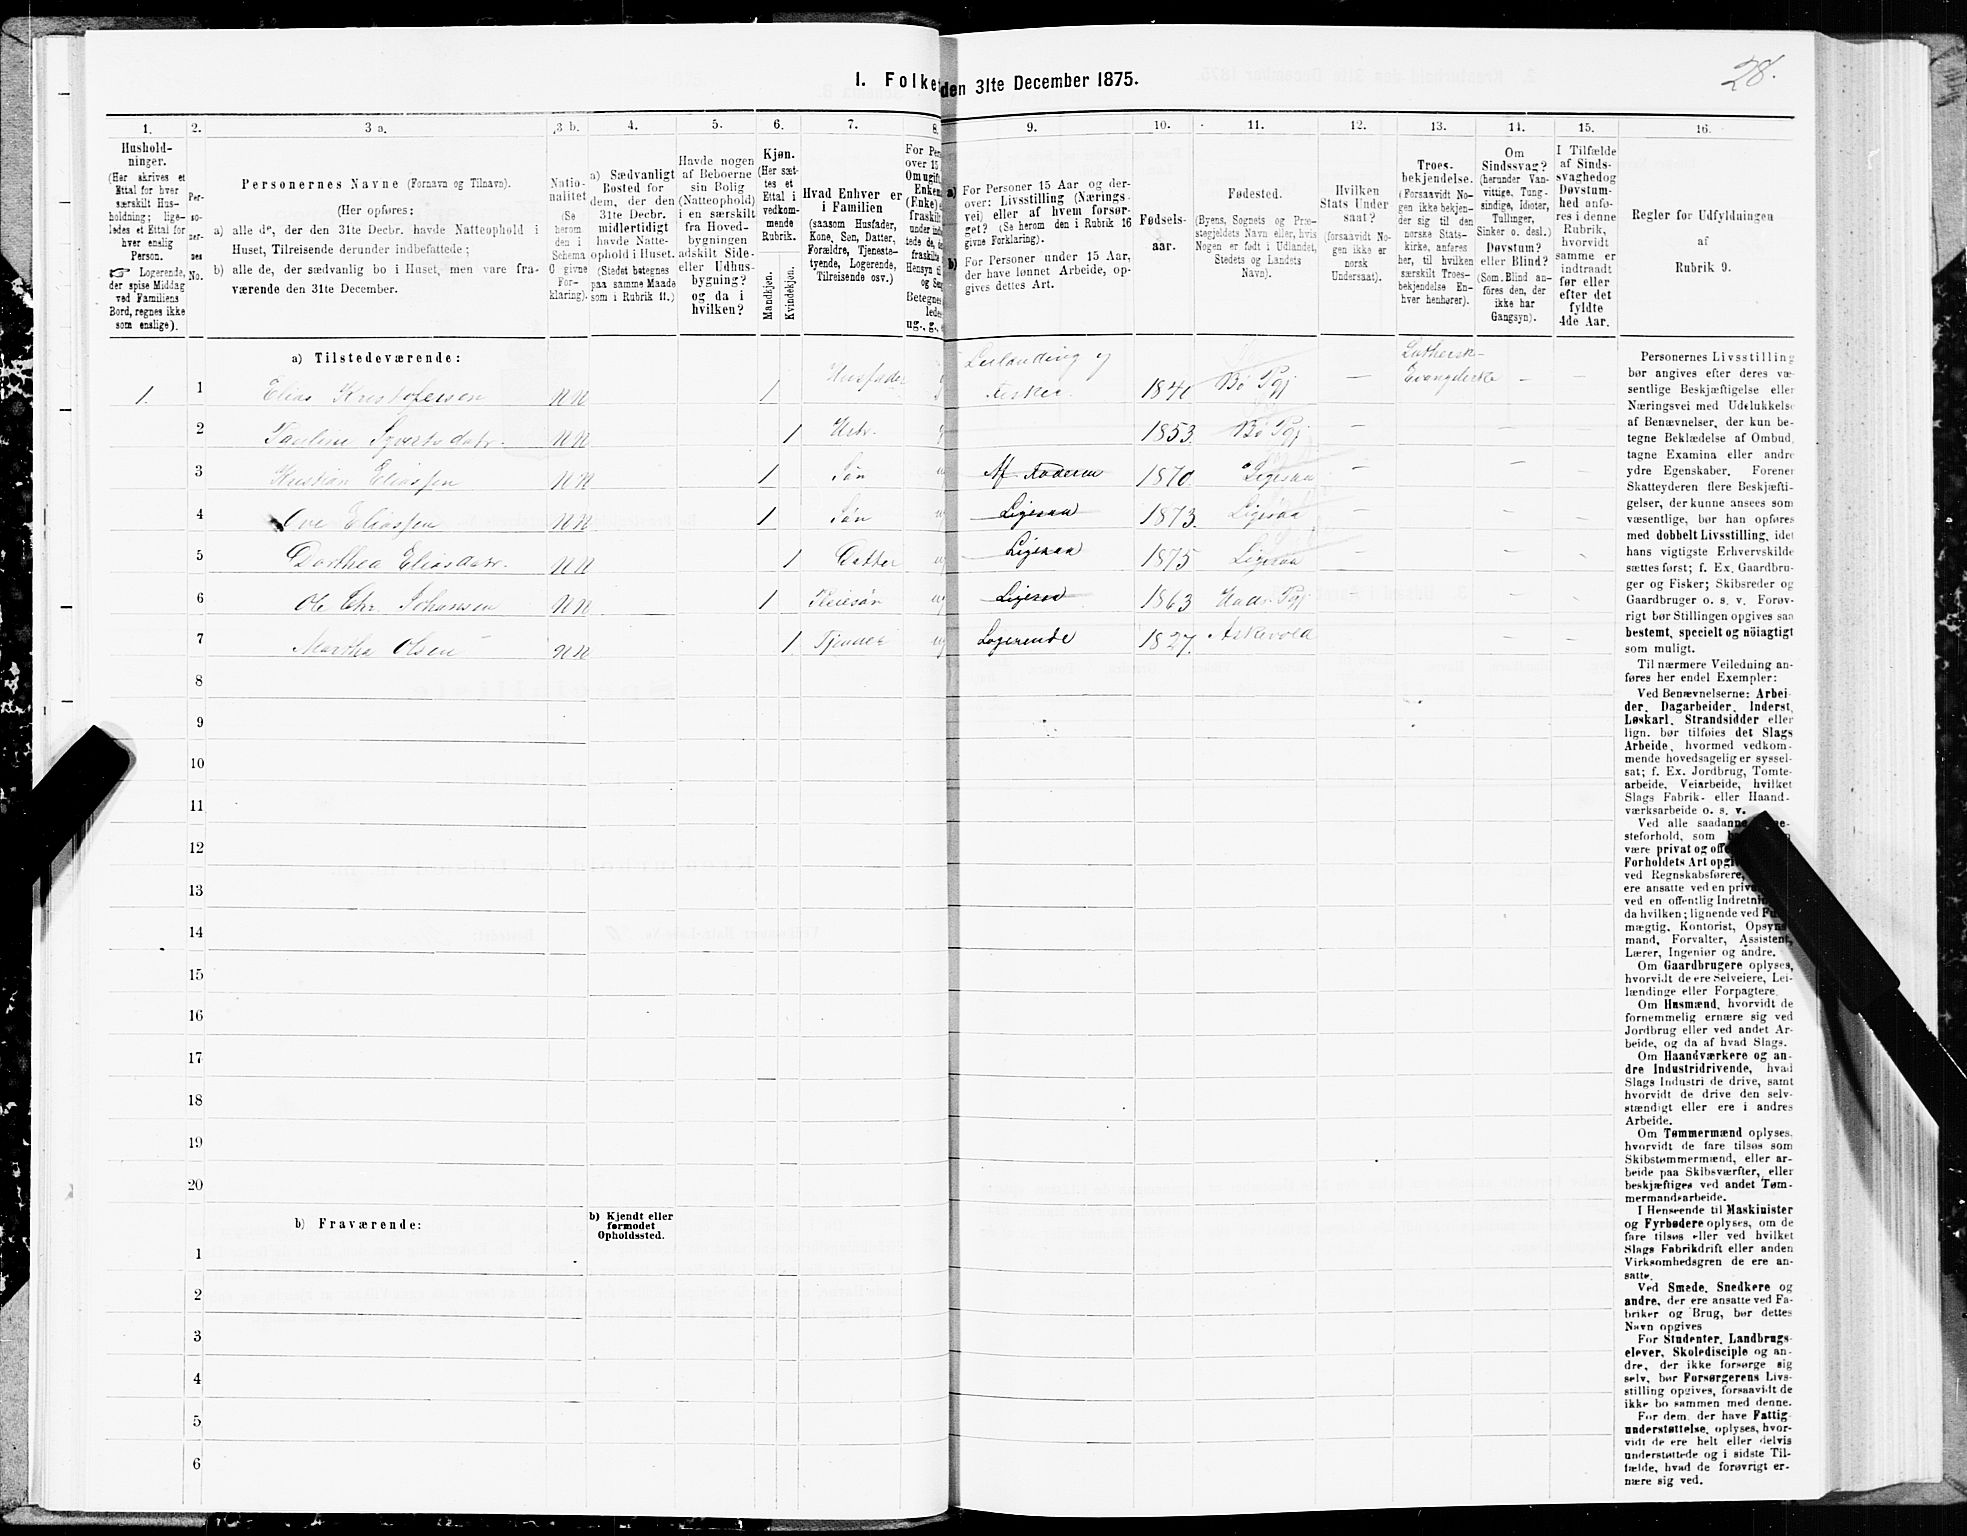 28.
1. Folke den 31te December 1875.
1. 2. 3 a. 3 b. 4. 5. 6. 7. 8. 9. 10. 11. 12. 13. 14. 15. 16.
Hushold-
ninger.
(Her skrives et
Ettal for hver
særskilt Hus-
holdning; lige-
ledes et Ettal for
hver enslig
Person.
☞ Logerende,
der spise Middag
ved Familiens
Bord, regnes ikke
som enslige).
Per-
so-
ner-
nes
No.
Personernes Navne (Fornavn og Tilnavn).
(Her opføres:
a) alle de, der den 31te Decbr. havde Natteophold i
Huset, Tilreisende derunder indbefattede;
b) alle de, der sædvanlig bo i Huset, men vare fra-
værende den 31te December.
Natio-
nalitet
(Se
herom
den i
Schema
C givne
For-
klaring).
a) Sædvanligt
Bosted for
dem, der den
31te Decbr.
midlertidigt
havde Natte-
ophold i Huset.
(Stedet betegnes
paa samme Maade
som i Rubrik 11.)
Havde nogen
af Beboerne
sin Bolig
(Natteophold)
i en særskilt
fra Hoved-
bygningen
adskilt Side-
eller Udhus-
bygning?
og da i
hvilken?
Kjøn.
(Her sæt-
tes et
Ettal i
vedkom-
mende
Rubrik.
Mandkjøn.
Kvindekjøn.
Hvad Enhver er
i Familien
(saasom Husfader,
Kone, Søn, Datter,
Forældre, Tjeneste-
tyende, Logerende,
Tilreisende osv.)
For Per
over 15
Om ugift,
Enken
(Enke) e
fraskilt
under ind
tede de,
fraskilte
Hensyn til
og Sen
Betegnes
lede
ug., g.,
a) For Personer 15 Aar og der-
over: Livsstilling (Nærings-
vei) eller af hvem forsør-
get? (Se herom den i Rubrik 16
givne Forklaring).
b) For Personer under 15 Aar,
der have lønnet Arbeide, op-
gives dettes Art.
Fødsels-
aar.
Fødested.
(Byens, Sognets og Præ-
stegjeldets Navn eller, hvis
Nogen er født i Udlandet,
Stedets og Landets
Navn).
Hvilken
Stats Under
saat?
(forsaavidt No-
gen ikke er
norsk
Undersaat).
Troes-
bekjendelse.
(Forsaavidt No-
gen ikke bekjen-
der sig til den
norske Stats-
kirke, anføres
her, til hvilken
særskilt Troes-
bekjendelse En-
hver henhører).
Om
Sindssvag?
(herunder Van-
vittige, Tung-
sindige, Idioter,
Tullinger,
Sinker o. desl.)
Døvstum?
eller Blind?
(Som Blind an-
føres den, der
ikke har
Gangsyn).
I Tilfælde
af Sinds-
svaghed og
Døvstum-
hed anfø-
res i denne
Rubrik,
hvorvidt
samme er
indtraadt
før eller
efter det
fyldte
4de Aar.
Regler for Udfyldningen
af
Rubrik 9.
a) Tilstedeværende:
1. 1 Elias Kristofersen NN 1 Husfader Leilænding og Fisker. 1840 Bø Pgj — Luthersk-Evangeliske — —
2 Pauline Syvertsdatr. NN 1 Hstr. 1853. Bø Pgj — — —
3 Kristian Eliassen NN 1 Søn Af Faderen 1870 Ligesaa — — —
4 Ove Eliassen NN 1 Søn Ligesaa 1873. Ligesaa — — —
5 Dorthea Eliasdatr. NN 1 Datter Ligesaa 1875 Ligesaa — — —
6 Ole Chr. Johansen NN 1 Pleiesøn Ligesaa 1863 Hads. Pgj — — —
7 Martha Olsen NN 1 Tjener Logerende 1827. Askevold — —
8
9
10
11
12
13
14
15
16
17
18
19
20
b) Fraværende:
b) Kjendt eller
formodet
Opholdssted.
1
2
3
4
5
6
Personernes Livsstilling
bør angives efter deres væ-
sentlige Beskjæftigelse eller
Næringsvei med Udelukkelse
af Benævnelser, der kun be-
tegne Beklædelse af Ombud,
tagne Examina eller andre
ydre Egenskaber. Forener
Skatteyderen flere Beskjæfti-
gelser, der kunne ansees som
væsentlige, bør han opføres
med dobbelt Livsstilling, idet
hans vigtigste Erhvervskilde
sættes først; f. Ex. Gaardbru-
ger og Fisker; Skibsreder og
Gaardbruger o. s. v. Forøv-
rigt bør Stillingen opgives saa
bestemt, specielt og nøiagtigt
som muligt.
Til nærmere Veiledning an-
føres her endel Exempler:
Ved Benævnelserne: Arbei-
der, Dagarbeider, Inderst,
Løskarl, Strandsidder eller
lign. bør tilføies det Slags
Arbeide, hvormed vedkom-
mende hovedsagelig er syssel-
sat; f. Ex. Jordbrug, Tomte-
arbeide, Veiarbeide, hvilket
Slags Fabrik- eller Haand-
værksarbeide o. s. v.
Ved alle saadanne
steforhold, som
være privat og off
Forholdets Art opgi
ved Regnskabsførere,
ere ansatte ved en priv
ved en offentlig Indretnin
da hvilken; lignende ved Fu
mægtig, Kontorist, Opsyns
mand, Forvalter, Assistent,
Lærer, Ingeniør og andre.
Om Gaardbrugere oplyses,
hvorvidt de ere Selveiere, Lei-
lændinge eller Forpagtere.
Om Husmænd, hvorvidt de
fornemmelig ernære sig ved
Jordbrug eller ved andet Ar-
beide, og da af hvad Slags.
Om Haandværkere og an-
dre Industridrivende, hvad
Slags Industri de drive, samt
hvorvidt de drive den selv-
stændigt eller ere i andres
Arbeide.
Om Tømmermænd oplyses,
hvorvidt de fare tilsøs som
Skibstømmermænd, eller ar-
beide paa Skibsværfter, eller
beskjæftiges ved andet Tøm-
mermandsarbeide.
I Henseende til Maskinister
og Fyrbødere oplyses, om de
fare tilsøs eller ved hvilket
Slags Fabrikdrift eller anden
Virksomhedsgren de ere an-
satte.
Ved Smede, Snedkere og
andre, der ere ansatte ved Fa-
briker og Brug, bør dettes
Navn opgives
For Studenter, Landbrugs-
elever, Skoledisciple og an-
dre, der ikke forsørge sig
selv, bør Forsørgerens Livs-
stilling opgives, forsaavidt de
ikke bo sammen med denne.
For dem, der have Fattig-
understøttelse, oplyses, hvor-
vidt de ere helt eller delvis
understøttede og i sidste Til-
fælde, hvad de forøvrigt er-
nære sig ved.